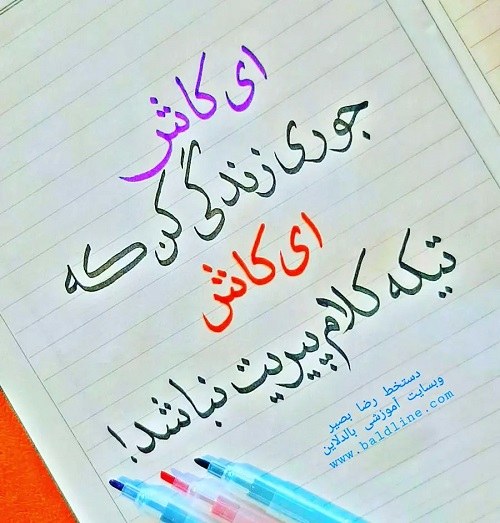 ای کاش
جوری زندگی کن که
ای کاش
تیکه کلام پیریت نباشد!
دستخط رضا بصیر
وبسایت آموزشی بالدلاین
www.baldline.com